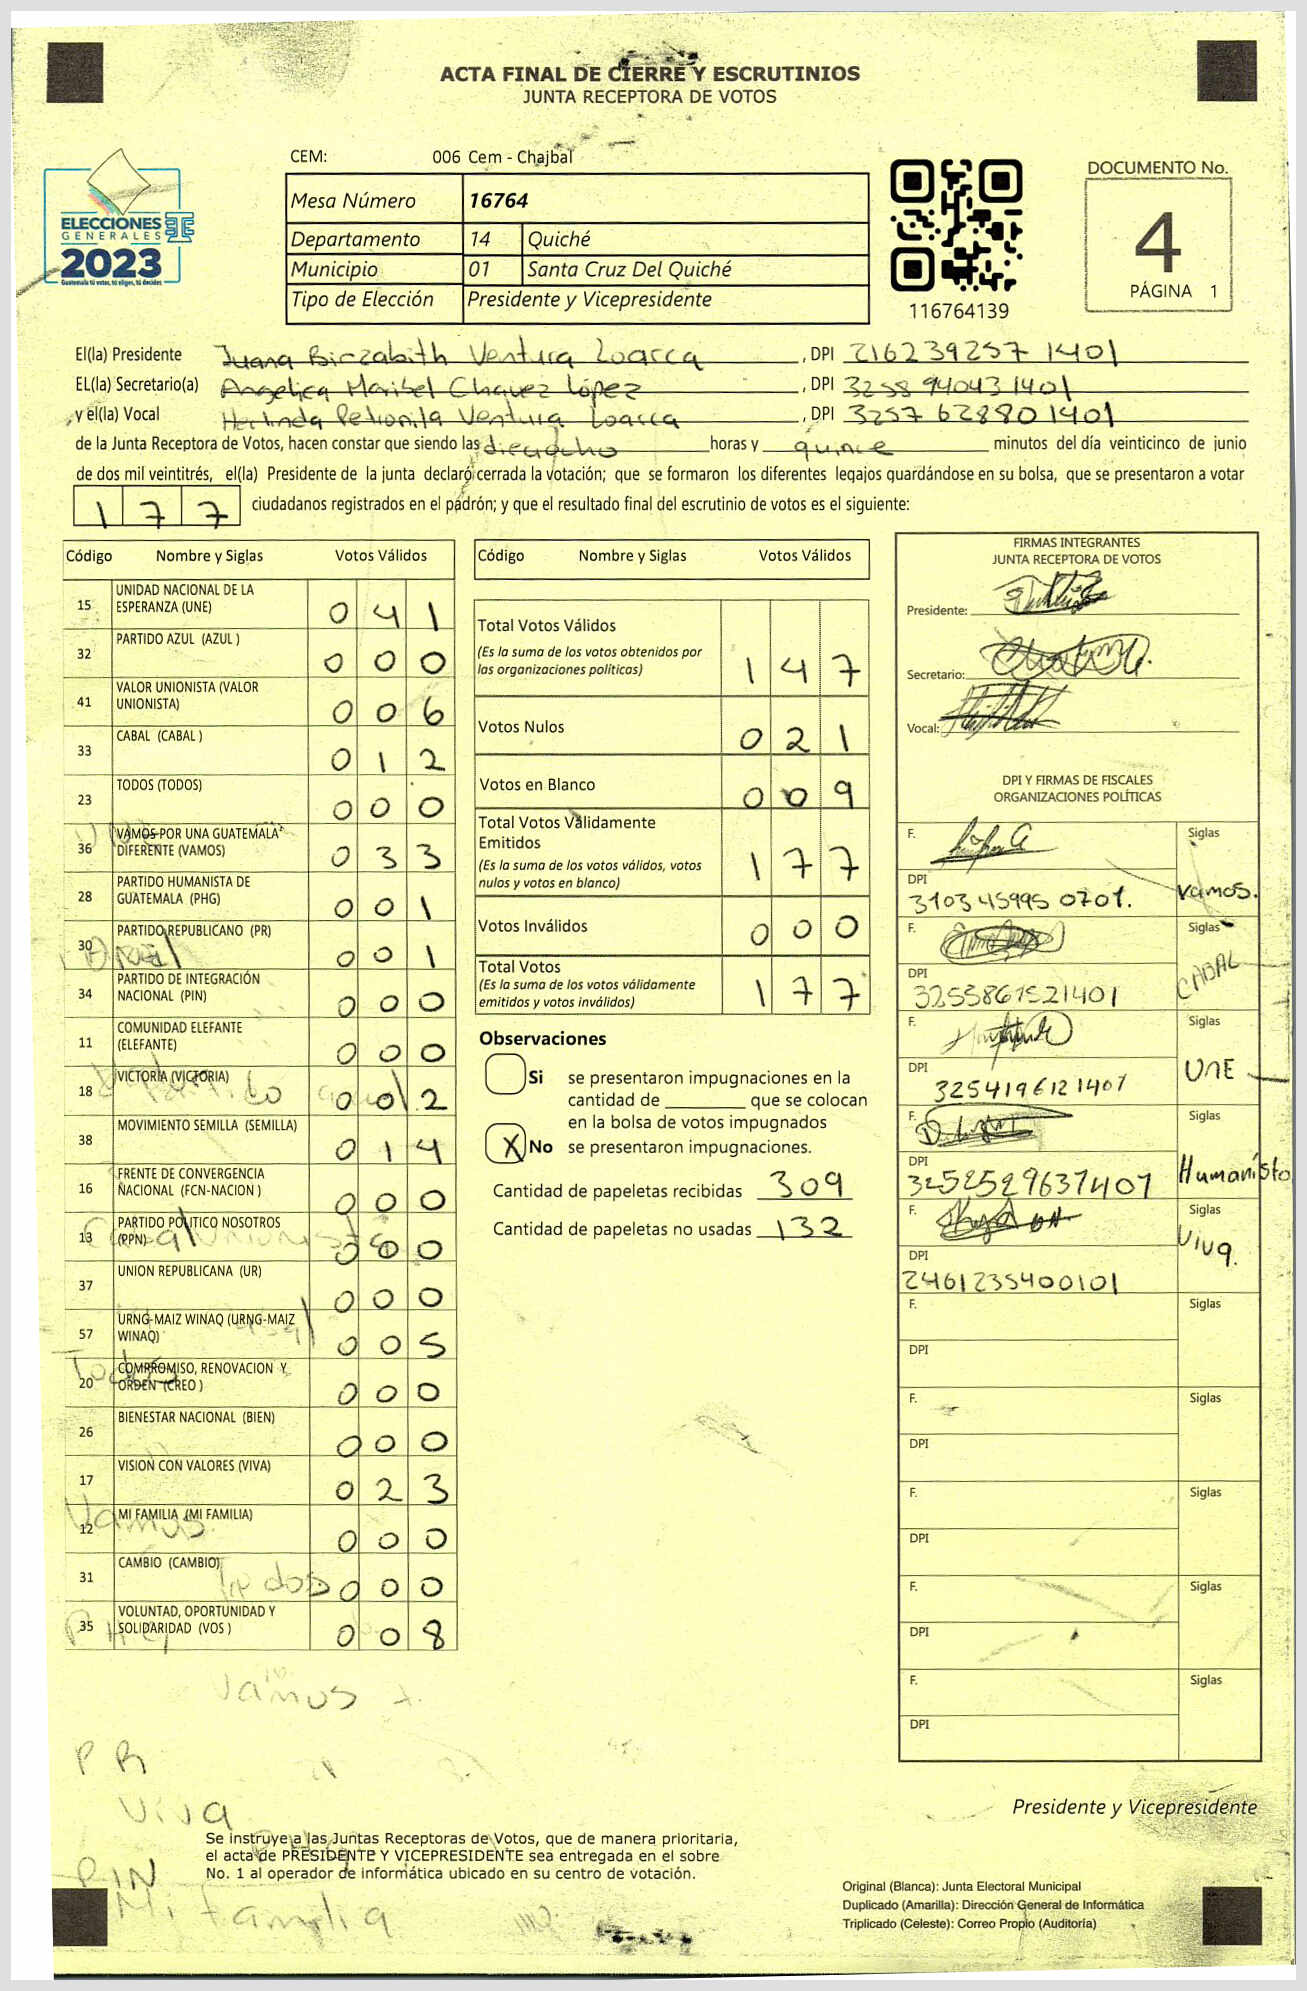 ACTA FINAL DE CIERRE Y ESCRUTINIOS
JUNTA RECEPTORA DE VOTOS
CEM: 006 Cem - Chajbal
ELECCIONES
GENERALES
2023
Guatemala tú votas, tú eliges, tú decides
Mesa Número 16764
Departamento 14 Quiché
Municipio 01 Santa Cruz Del Quiché
Tipo de Elección Presidente y Vicepresidente
116764139
DOCUMENTO No.
4
PÁGINA 1
El(la) Presidente Juana Birzabith Ventura Loarca, DPI 216239257 1401
EL(la) Secretario(a) Angelica Maribel Chavez López, DPI 3258 94043 1401
y el(la) Vocal Herlinda Petronila Ventura Loarca, DPI 3257 62880 1401
de la Junta Receptora de Votos, hacen constar que siendo las dieciocho horas y quince minutos del día veinticinco de junio
de dos mil veintitrés, el(la) Presidente de la junta declaró cerrada la votación; que se formaron los diferentes legajos guardándose en su bolsa, que se presentaron a votar
177 ciudadanos registrados en el padrón; y que el resultado final del escrutinio de votos es el siguiente:
Código Nombre y Siglas Votos Válidos
15 UNIDAD NACIONAL DE LA ESPERANZA (UNE) 041
32 PARTIDO AZUL (AZUL ) 000
41 VALOR UNIONISTA (VALOR UNIONISTA) 006
33 CABAL (CABAL ) 012
23 TODOS (TODOS) 000
36 VAMOS POR UNA GUATEMALA DIFERENTE (VAMOS) 033
28 PARTIDO HUMANISTA DE GUATEMALA (PHG) 001
30 PARTIDO REPUBLICANO (PR) 001
34 PARTIDO DE INTEGRACIÓN NACIONAL (PIN) 000
11 COMUNIDAD ELEFANTE (ELEFANTE) 000
18 VICTORIA (VICTORIA) 002
38 MOVIMIENTO SEMILLA (SEMILLA) 014
16 FRENTE DE CONVERGENCIA NACIONAL (FCN-NACION ) 000
13 PARTIDO POLITICO NOSOTROS (PPN) 000
37 UNION REPUBLICANA (UR) 000
57 URNG-MAIZ WINAQ (URNG-MAIZ WINAQ) 005
20 COMPROMISO, RENOVACION Y ORDEN (CREO ) 000
26 BIENESTAR NACIONAL (BIEN) 000
17 VISION CON VALORES (VIVA) 023
12 MI FAMILIA (MI FAMILIA) 000
31 CAMBIO (CAMBIO) 000
35 VOLUNTAD, OPORTUNIDAD Y SOLIDARIDAD (VOS ) 008
Todos
Vamos
Todos
PHG
Vamos
PR
Viva
PHG
PIN
Mi familia
Código Nombre y Siglas Votos Válidos
Total Votos Válidos 147
(Es la suma de los votos obtenidos por
las organizaciones políticas)
Votos Nulos 021
Votos en Blanco 009
Total Votos Válidamente
Emitidos 177
(Es la suma de los votos válidos, votos
nulos y votos en blanco)
Votos Inválidos 000
Total Votos 177
(Es la suma de los votos válidamente
emitidos y votos inválidos)
Observaciones
Si se presentaron impugnaciones en la
cantidad de ________ que se colocan
en la bolsa de votos impugnados
X No se presentaron impugnaciones.
Cantidad de papeletas recibidas 309
Cantidad de papeletas no usadas 132
FIRMAS INTEGRANTES
JUNTA RECEPTORA DE VOTOS
Presidente:
Secretario:
Vocal:
DPI Y FIRMAS DE FISCALES
ORGANIZACIONES POLÍTICAS
F. Siglas
DPI 3103 45995 0701. Vamos.
F. Siglas
DPI 3253867521401 CABAL
F. Siglas
DPI 3254196121401 UNE
F. Siglas
DPI 3252529637401 Humanista
F. Siglas
DPI 2461235400101 Viva.
F. Siglas
DPI
F. Siglas
DPI
F. Siglas
DPI
F. Siglas
DPI
F. Siglas
DPI
Presidente y Vicepresidente
Se instruye a las Juntas Receptoras de Votos, que de manera prioritaria,
el acta de PRESIDENTE Y VICEPRESIDENTE sea entregada en el sobre
No. 1 al operador de informática ubicado en su centro de votación.
Original (Blanca): Junta Electoral Municipal
Duplicado (Amarilla): Dirección General de Informática
Triplicado (Celeste): Correo Propio (Auditoría)